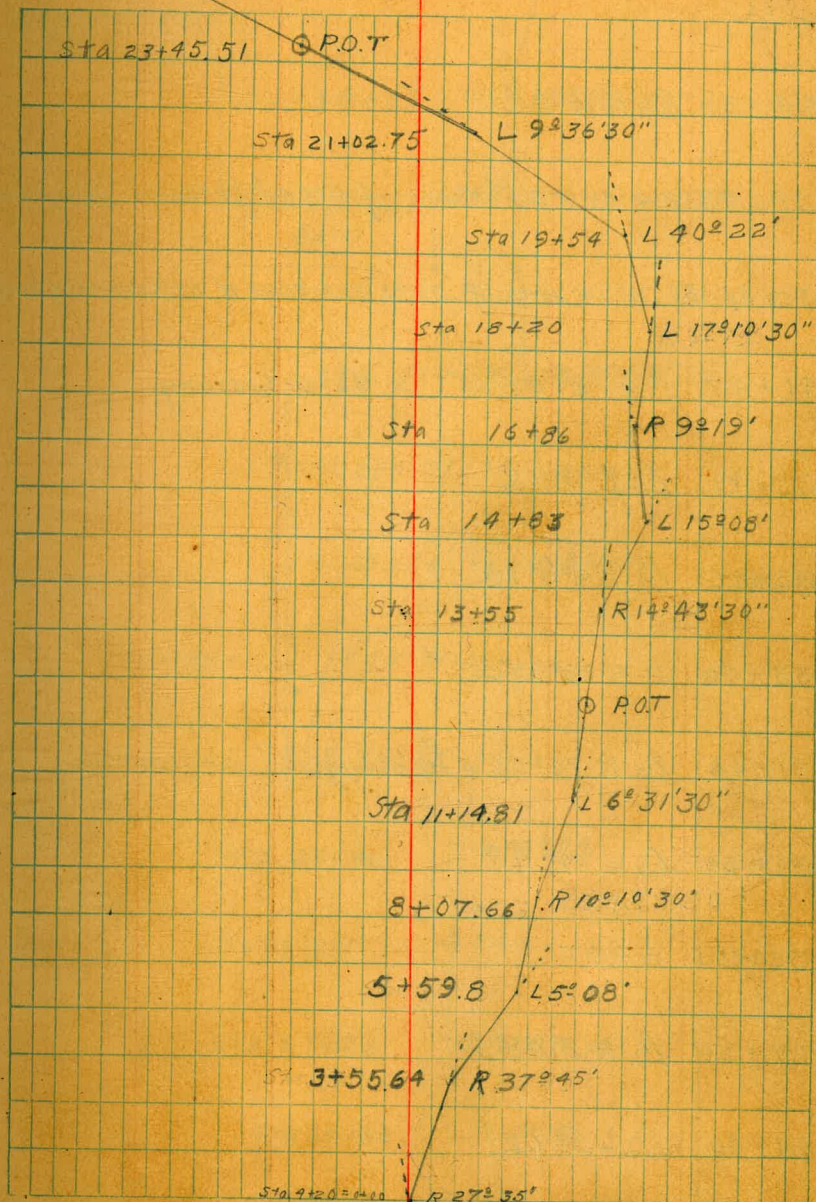 Sta 23+45.51 P.O.T
Sta 21+02.75 L 9º36'30"
Sta 19+54 L 40º22'
Sta 18+20 L 17º10'30"
Sta 16+86 R 9º19'
Sta 14+83 L 15º08'
Sta 13+55 R 14º43'30"
P.O.T
Sta 11+14.81 L 6º31'30"
8+07.66 R 10º10'30'
5+59.8 L 5º08'
St 3+55.64 R 37º45'
Sta 4+20 = 0+00 R 27º35'